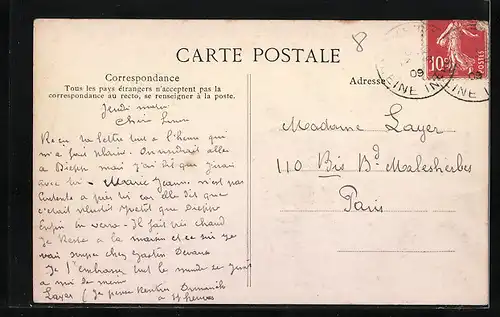 8
CARTE POSTALE
Correspondance
Tous les pays étrangers n'acceptent pas la
correspondance au recto, se renseigner à la poste.
Adresse
10c
POSTES
09
SEINE IN
Jeudi matin
Reçu ta lettre tout a l'heure qui
m'a fait plaisir. On voudrait aller
a Dieppe mais j'ai dit que j'irai
avec toi - Marie Jeanne n'est pas
contente a près toi car elle dit que
c'etait plutôt petit que Dieppe
Enfin on verra - Il fait très chaud
Je reste a la maison et ce soir je
vais souper chez
Je t'embrasse tout le monde se joint
a moi de meme
Layer (Je pense rentrer Dimanche
a heures
Madame Layer
110 Bis Bd Malesherbes
Paris